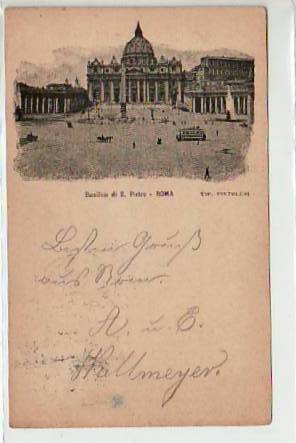 Basilica di S. Pietro - ROMA
Besten Gruß
aus Rom.
A. u. E.
Hallmeyer.